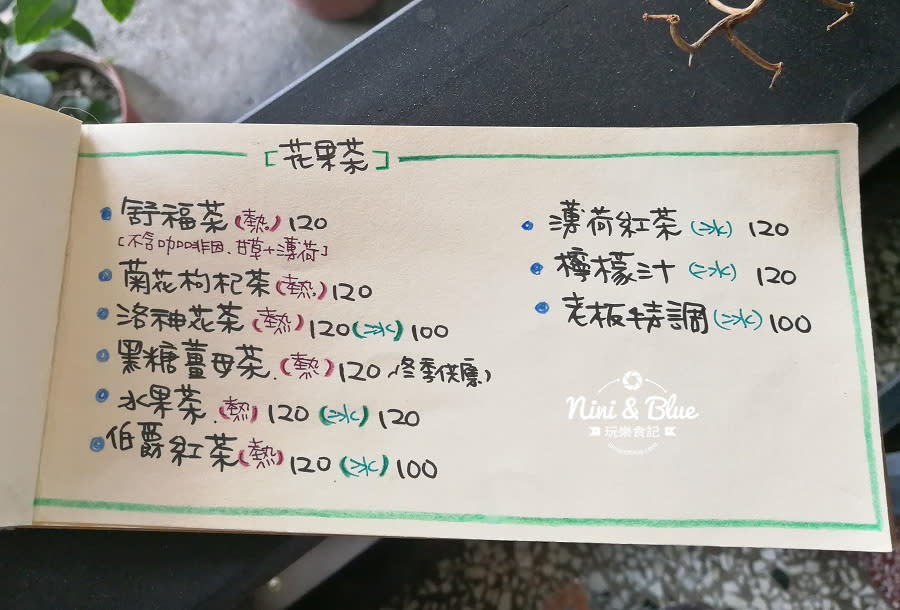 [花果茶]
舒福茶(熱) 120
[不含咖啡因.甘草+薄荷]
菊花枸杞茶(熱) 120
洛神花茶(熱) 120 (冰) 100
黑糖薑母茶.(熱) 120 (冬季供應)
水果茶.(熱) 120 (冰) 120
伯爵紅茶(熱) 120 (冰) 100
薄荷紅茶(冰) 120
檸檬汁(冰) 120
老板特調(冰) 100
Nini & Blue
玩樂食記